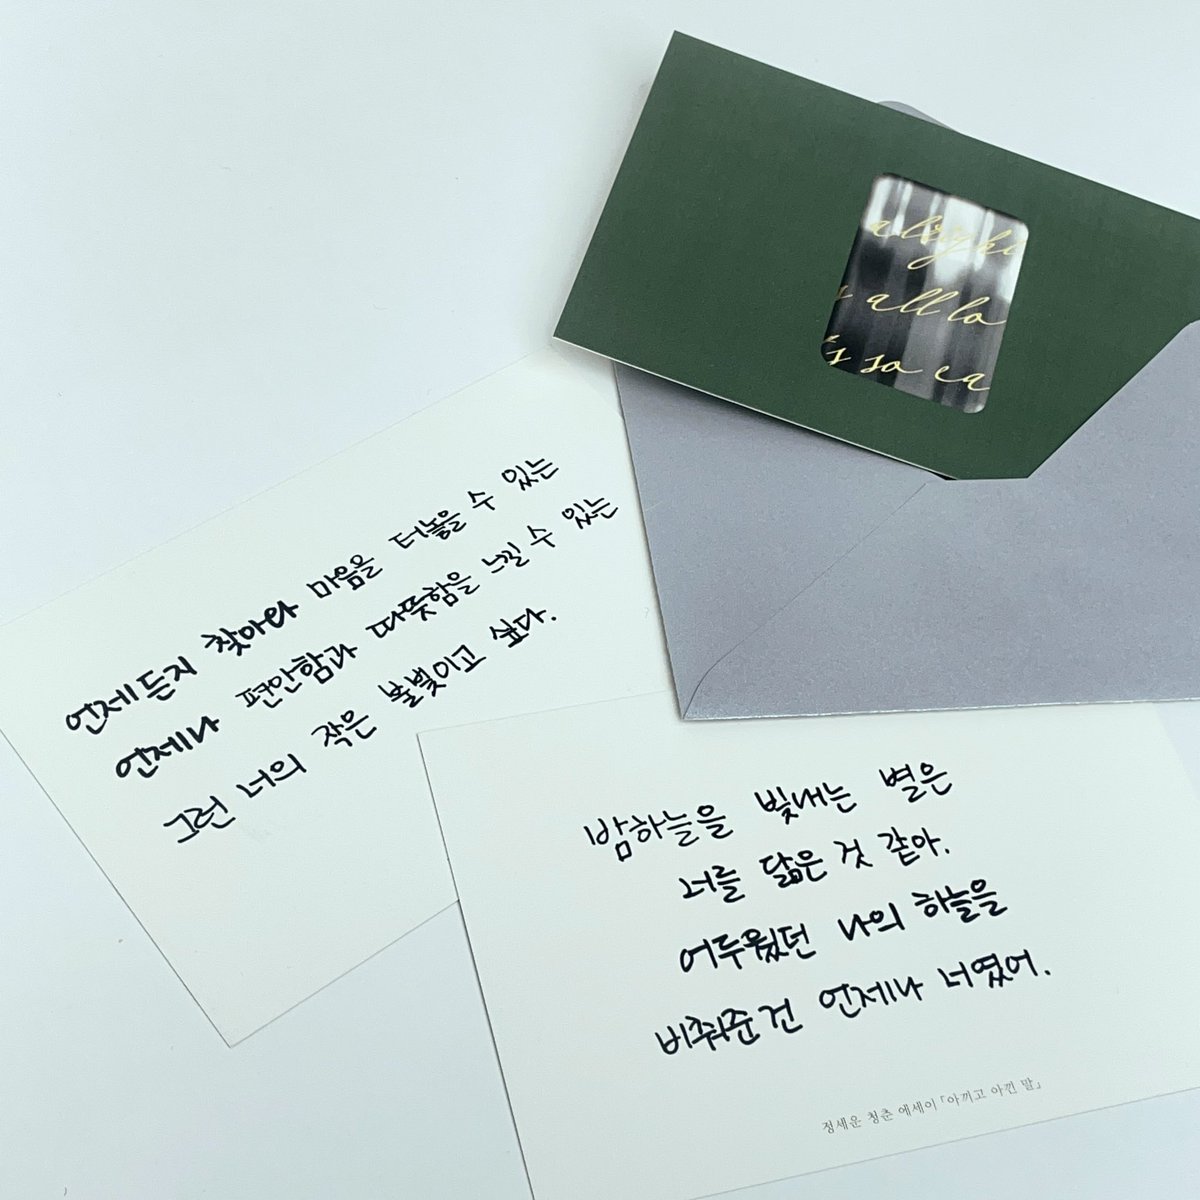 alright
s all lo
t's so ea
언제든지 찾아와 마음을 터놓을 수 있는
언제나 편안함과 따뜻함을 느낄 수 있는
그런 너의 작은 불빛이고 싶다.
밤하늘을 빛내는 별은
너를 닮은 것 같아.
어두웠던 나의 하늘을
비춰준건 언제나 너였어.
정세운 청춘 에세이 「아끼고 아낀 말」